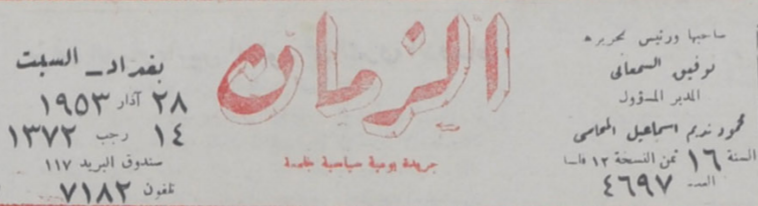 صاحبها ورئيس تحريره
توفيق السمعانى
المدير المسؤول
محمود نديم اسماعيل المحامى
السنة ١٦ ثمن النسخة ١٢ فلسا
العدد ٤٦٩٧
الزمان
جريدة يومية سياسية
بغداد - السبت
٢٨ آذار ١٩٥٣
١٤ رجب ١٣٧٢
صندوق البريد ١١٧
تلفون ٧١٨٢